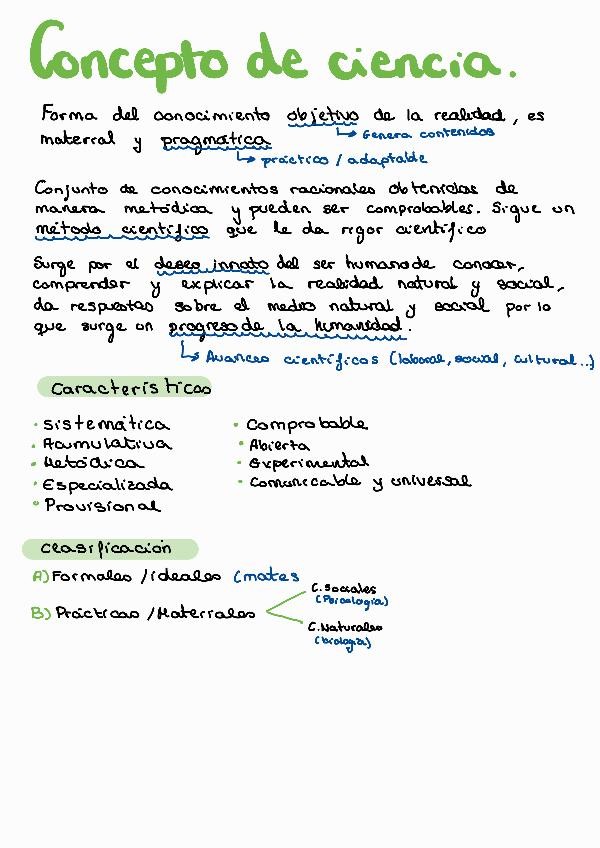 Concepto de ciencia.
Forma del conocimiento objetivo de la realidad, es
↳ Genera contenidos
material y pragmática
↳ práctico / adaptable
Conjunto de conocimientos racionales obtenidos de
manera metódica y pueden ser comprobables. Sigue un
método científico que le da rigor científico
Surge por el deseo innato del ser humano de conocer,
comprender y explicar la realidad natural y social,
da respuestas sobre el medio natural y social por lo
que surge un progreso de la humanidad.
↳ Avances científicos (laboral, social, cultural..)
Características
· Sistemática
· Acumulativa
· Metódica
· Especializada
· Provisional
· Comprobable
· Abierta
· Experimental
· Comunicable y universal
Clasificación
A) Formales / ideales (mates
B) Prácticas / Materiales
C. Sociales
(Psicología)
C. Naturales
(biología)